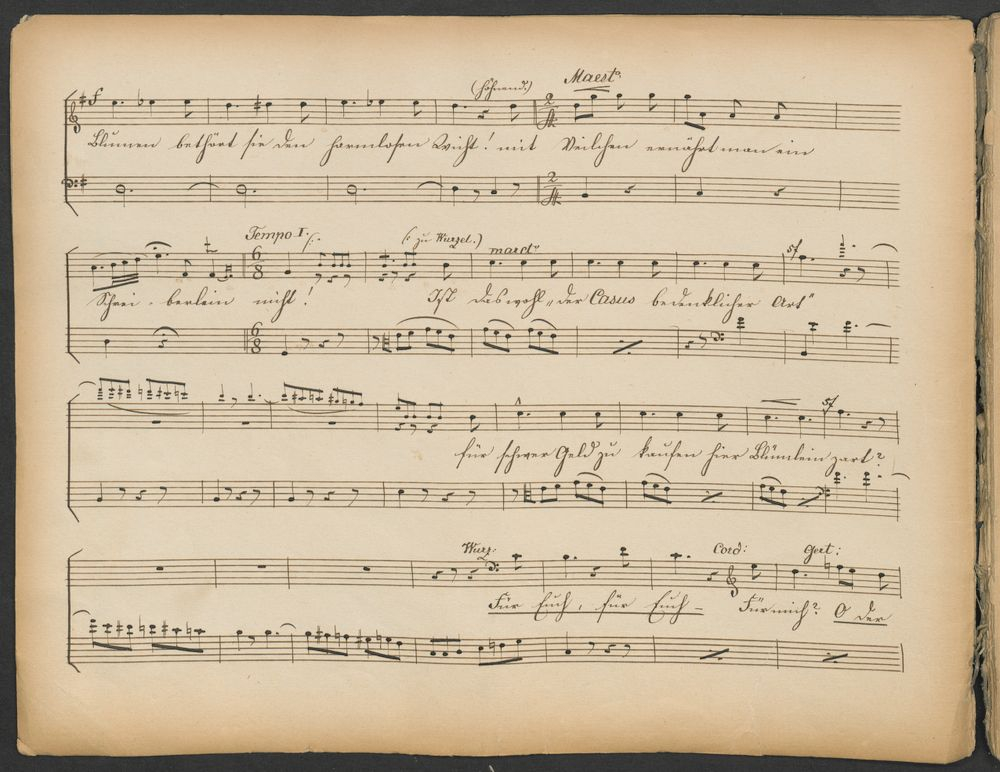 (höhnend.) Maesto.
Blumen bethört sie den harmlosen Wicht! mit Veilchen ernährt man ein
Tempo I. (: zu Wurzel.) marcto
Schrei-berlein nicht! Ist das wohl „der Casus bedenklicher Art"
sf
für schwer Geld zu kaufen hier Blümlein zart?
Wurz. Cord: Gert:
Für Euch, für Euch – Für mich? O der